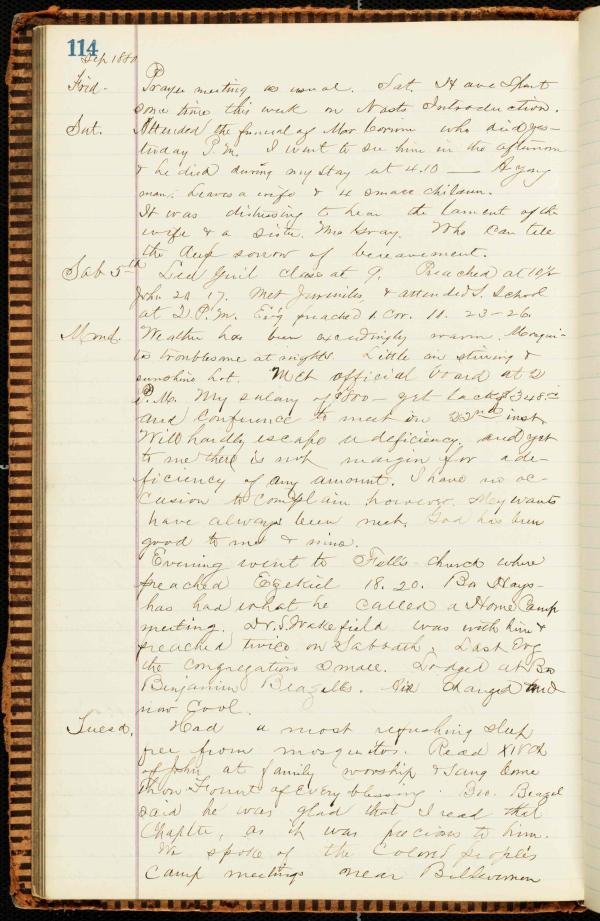 114
Sep 1880
Frid- Prayer meeting as usual. Sat. Have Spent
some time this week on Nasts Introduction.
Sat. Attended the funeral of Mar Corwin who died yes-
terday P.M. I went to see him in the afternoon
& he died during my stay at 4.10 — A young
man, Leaves a wife & 4 small children.
It was distressing to hear the lament of the
wife & a sister Mrs Gray. Who can tell
the deep sorrow of bereavement.
Sab 5th Led Guil class at 9. Preached at 10½
John 20 17. Met Juveniles, & attended S. School
at 2 P.M. Evg preached 1 Cor. 11. 23-26.
Mond. Weather has been exceedingly warm. Mosqui-
to troublesome at nights. Little air stirring &
sunshine hot. Met official board at 2
P.M. My salary of $800— yet lack $348.
and conference to meet on 22nd inst.
Will hardly escape a deficiency, and yet
to me there is not margin for a de-
ficiency of any amount. I have no oc-
casion to complain however. My wants
have always been met, God has been
good to me & mine.
Evening went to Falls church where
preached Ezekiel 18. 20. Bro Hays-
has had what he called a Home Camp
meeting. Dr. S. Wakefield was with him &
preached twice on Sabbath. Last Evg
the congregation small. Lodged at Bro
Benjamin Beazells. Air changed and
now Cool.
Tuesd. Had a most refreshing sleep
free from mosquitos. Read XIV Ch
of John at family worship & sang Come
Thou Fount of Every blessing. Bro. Beazel
said he was glad that I read that
Chapter, as it was precious to him.
We spoke of the Colored people's
Camp meetings near Bellevernon